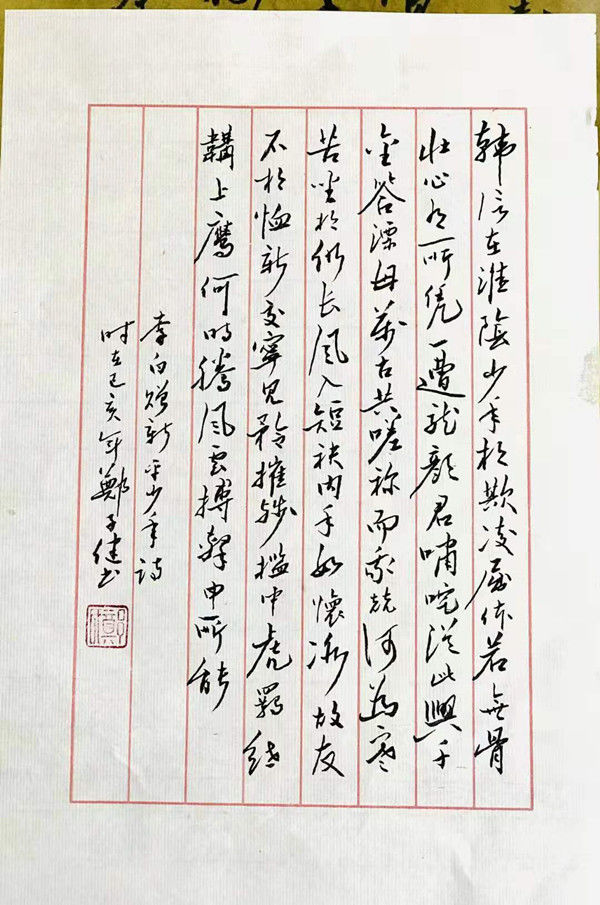 韩信在淮陰少年相欺凌屈体若無骨
壮心有所凭一遭龍顏君嘯咤從此興千
金答漂母萬古共嗟称而我竞何為寒
苦坐相仍長風入短袂内手如懷冰故友
不相恤新交寧見矜摧残槛中虎羁绁
韝上鷹何時騰風雲搏擊申所能
李白贈新平少年詩
时在己亥年鄭子健书